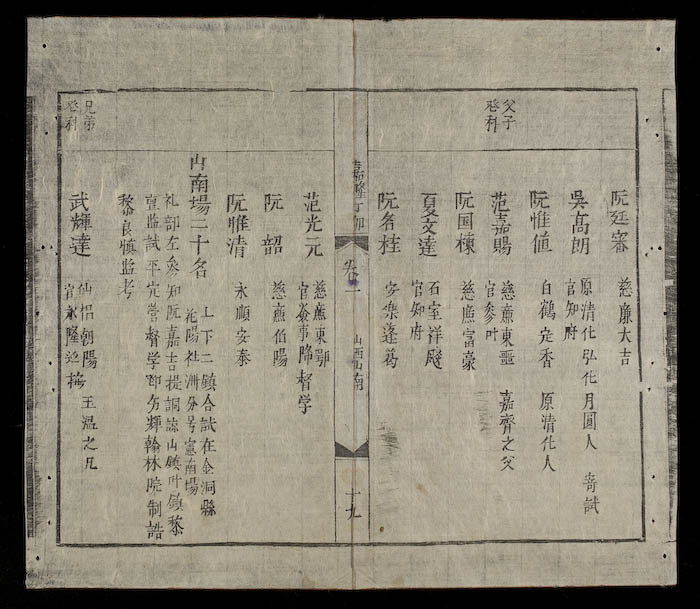 父子
登科
阮廷審 慈廉大吉
吳高朗 原清化弘化月圓人 寄試
官知府
阮惟值 白鶴定香 原清化人
范嘉賜 慈廉東噩 嘉齊之父
官參叶
阮国棟 慈廉富豪
夏文達 石室祥颷
官知府
阮名桂 安樂蓬葛
嘉隆丁卯
卷一
山西山南
十九
范光元 慈廉東鄂
官僉事歸督学
阮韶 慈廉伯陽
阮惟清 永順安泰
山南場二十名 上下二鎮合試在金洞縣
花陽社洲分号憲南場
礼部左参知阮嘉吉提調諒山鎮叶鎮黎
亶監試平定營督学鄧允輝翰林院制誥
黎良慎監考
兄弟
登科
武輝達 仙侶朝陽 玉温之兄
官永隆